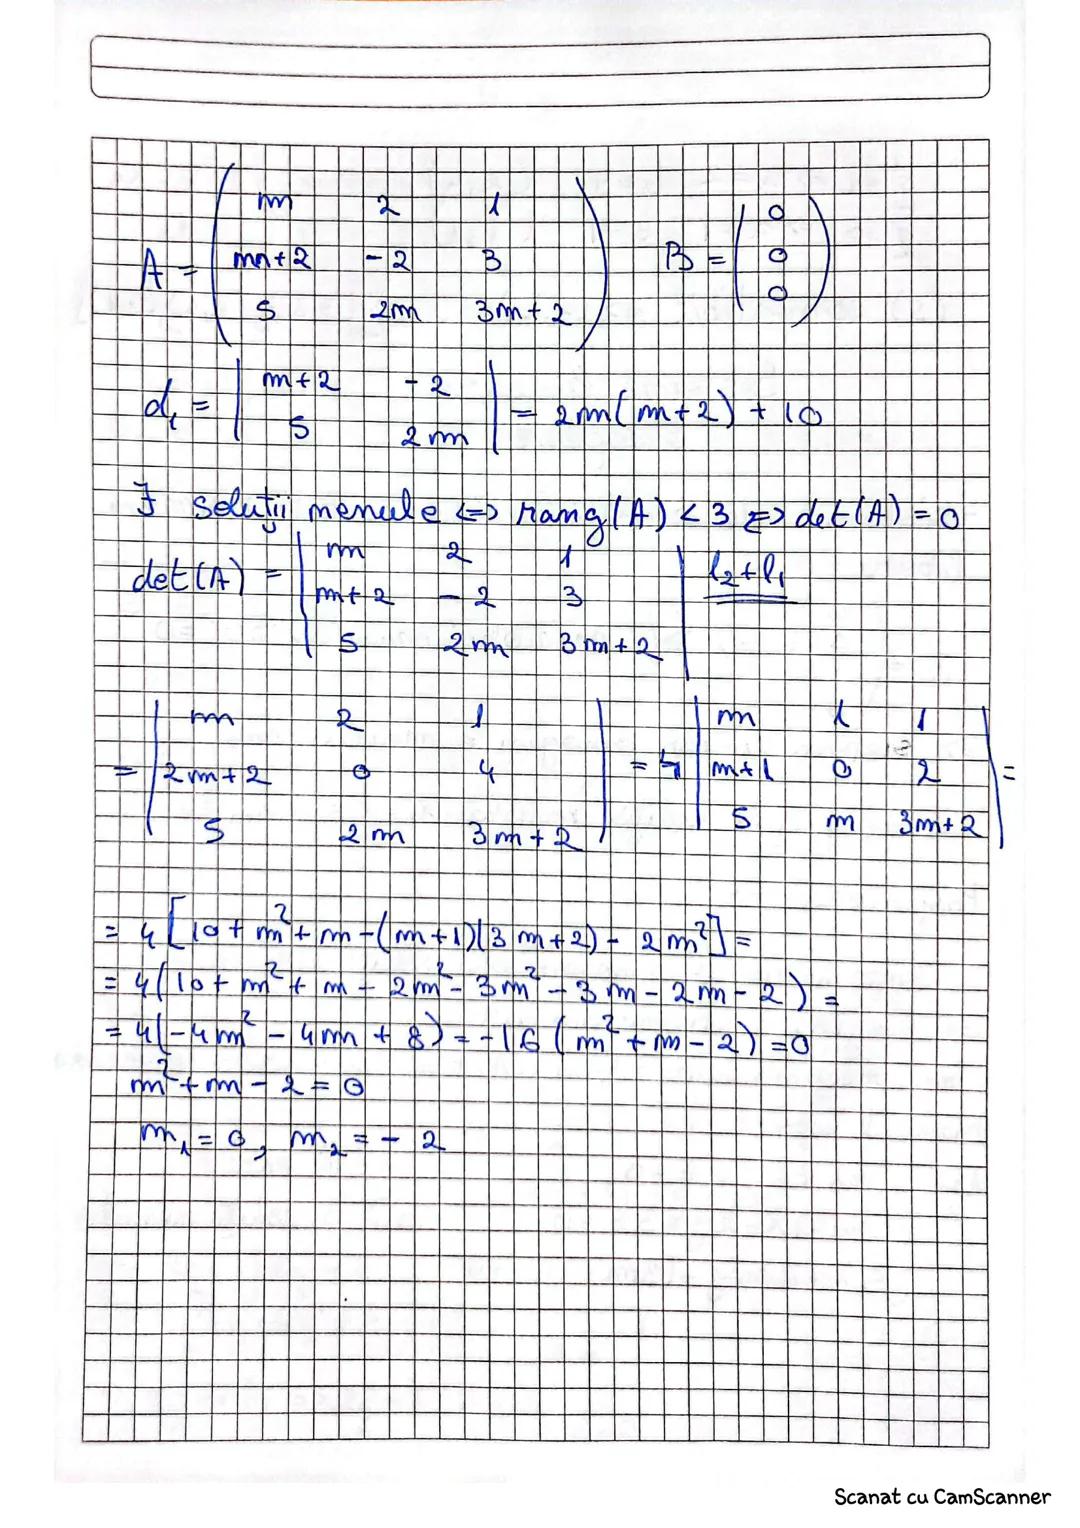 A = ( m 2 1
m+2 -2 3
5 2m 3m+2 ) B = ( 0
0
0 )
d₁ = | m+2 -2
5 2m | = 2m(m+2) + 10
∃ soluții nenule <=> rang(A) < 3 <=> det(A) = 0
det(A) = | m 2 1
m+2 -2 3
5 2m 3m+2 | l₂+l₁
= | m 2 1
2m+2 0 4
5 2m 3m+2 | = 4 | m 1 1
m+1 0 2
5 m 3m+2 | =
= 4[10 + m² + m - (m+1)(3m+2) - 2m²] =
= 4(10 + m² + m - 2m² - 3m² - 3m - 2m - 2) =
= 4(-4m² - 4m + 8) = -16(m² + m - 2) = 0
m² + m - 2 = 0
m₁ = 0, m₂ = -2
Scanat cu CamScanner